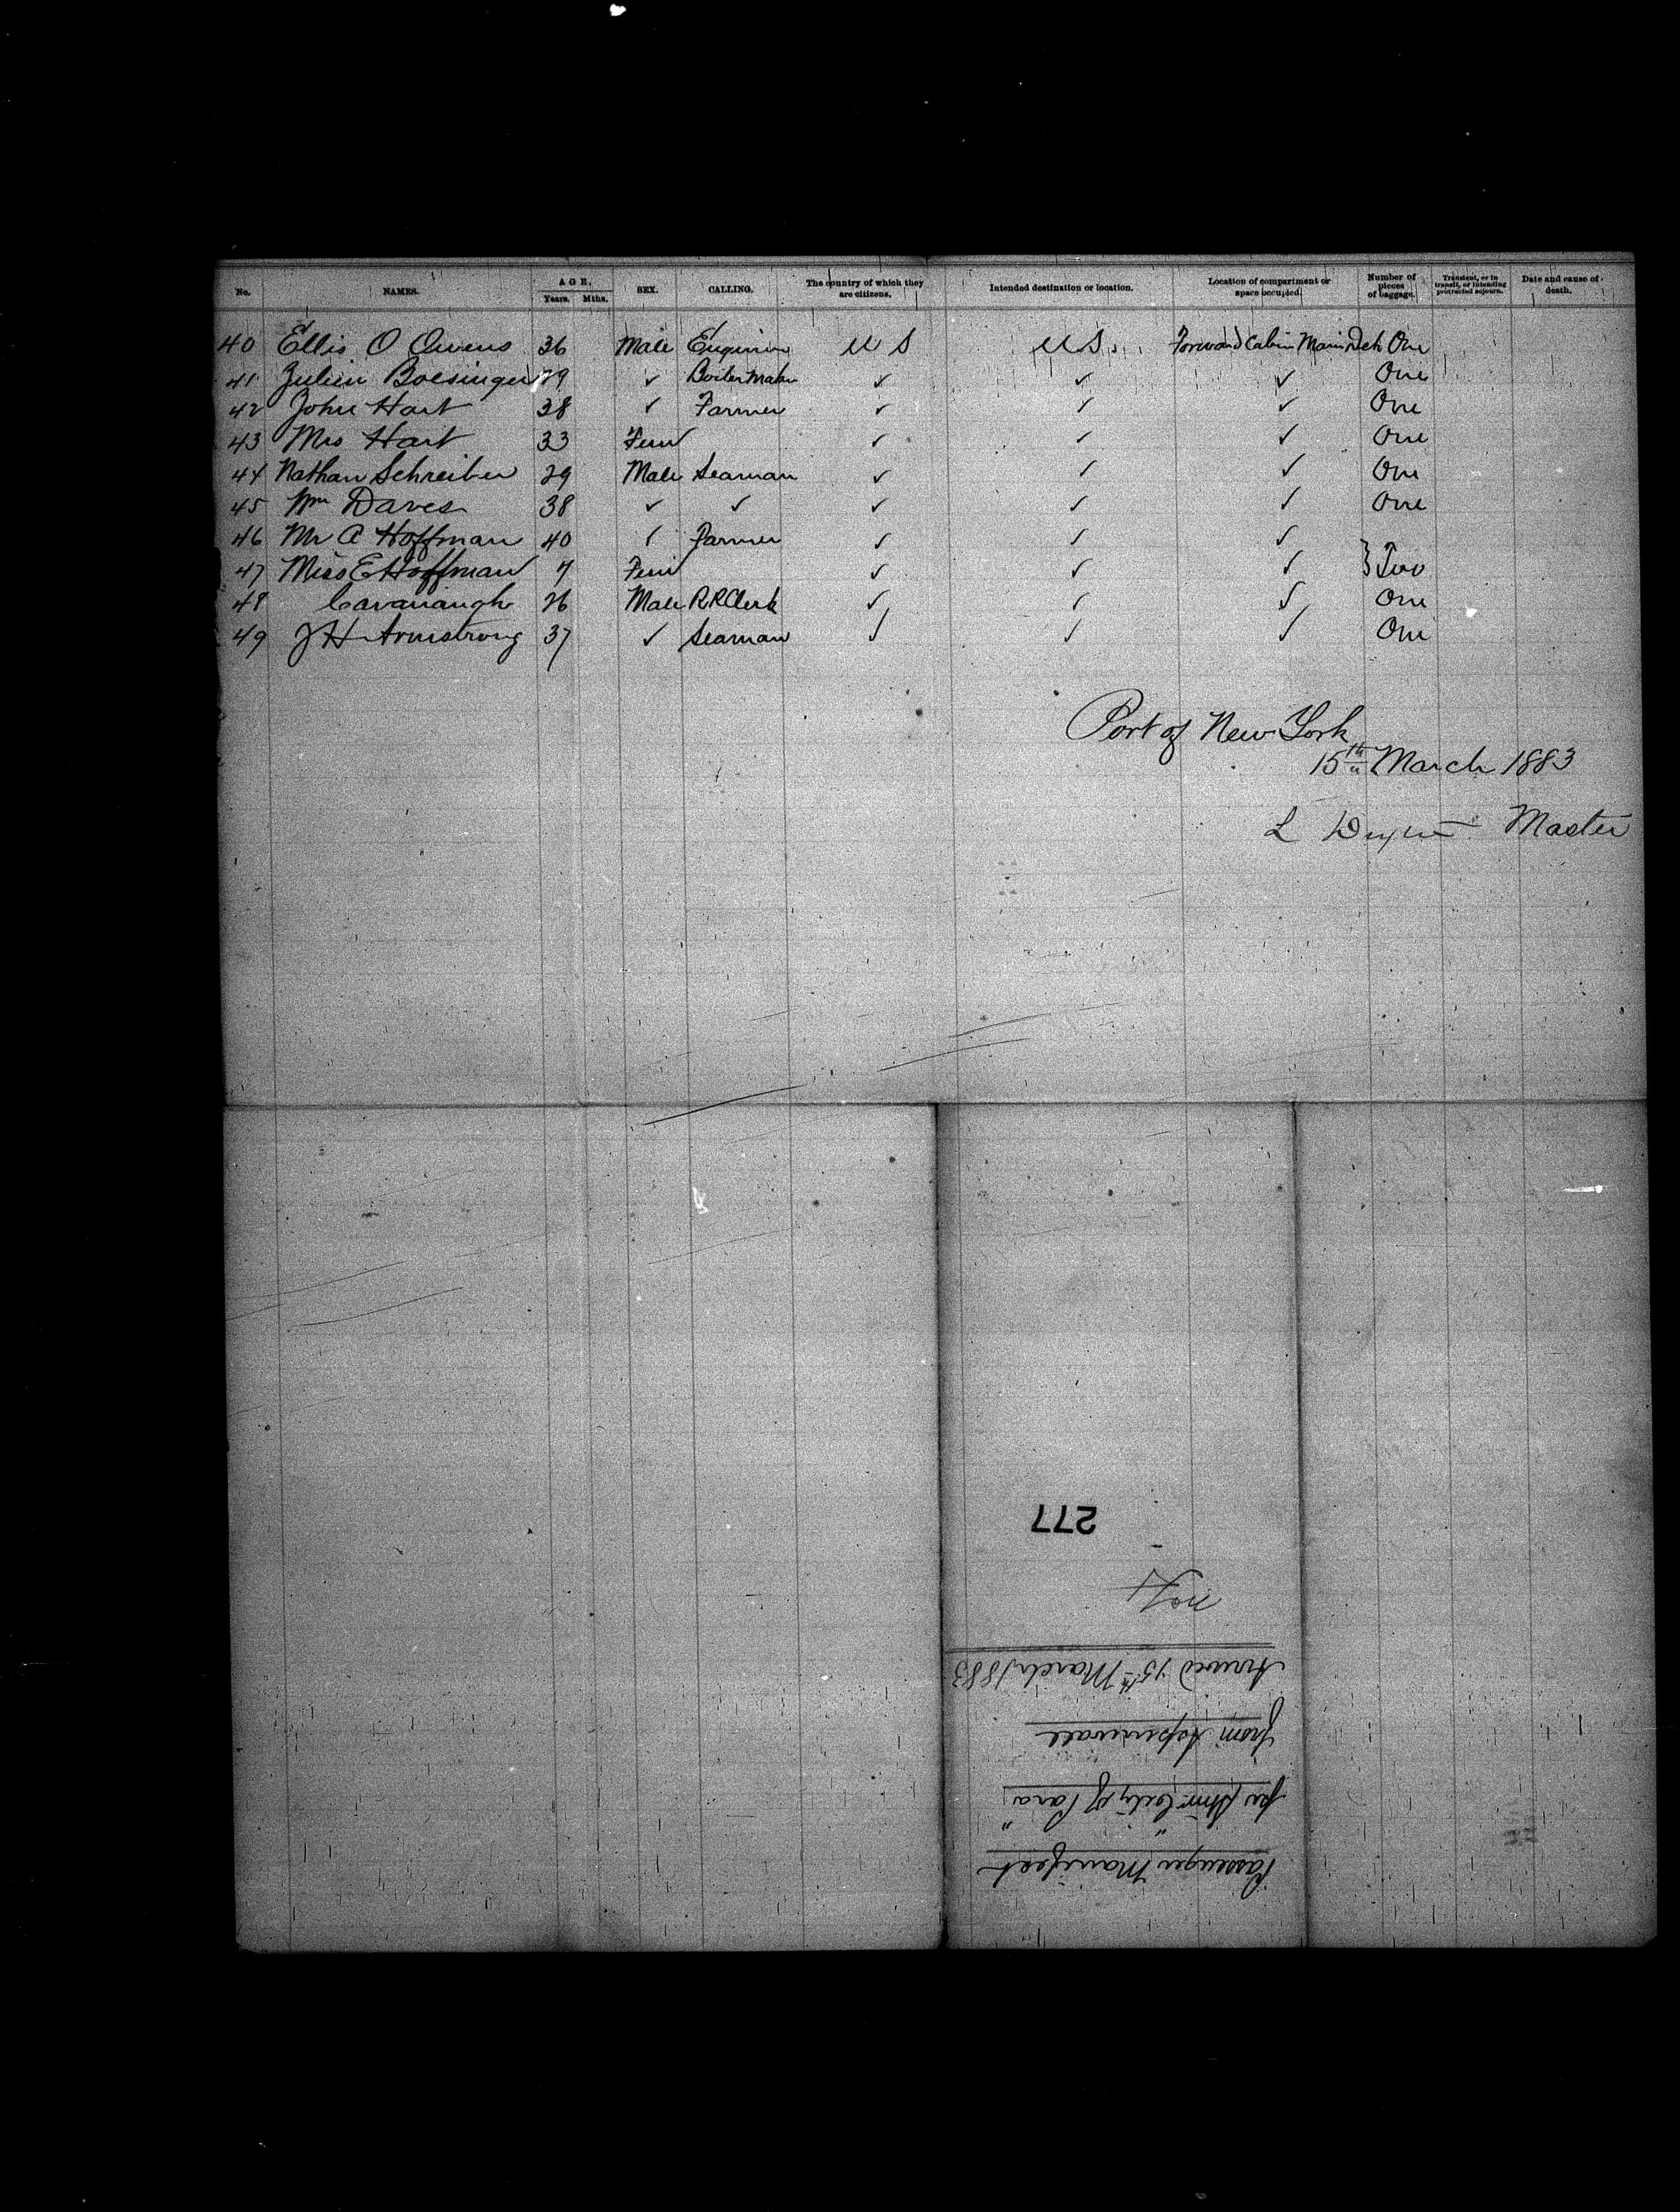 No. NAMES. AGE. Years. Mths. SEX. CALLING. The country of which they are citizens. Intended destination or location. Location of compartment or space occupied. Number of pieces of baggage. Transient, or in transit, or intending protracted sojourn. Date and cause of death.
40 Ellis O Owens 36 Male Engineer U S U S. Forward Cabin Main Deck One
41 Julien Boesinger 29 ✓ Boiler Maker ✓ ✓ ✓ One
42 John Hart 38 ✓ Farmer ✓ ✓ ✓ One
43 Mrs Hart 33 Fem ✓ ✓ ✓ One
44 Nathan Schreiber 29 Male Seaman ✓ ✓ ✓ One
45 Wm Daves 38 ✓ ✓ ✓ ✓ ✓ One
46 Mr A Hoffman 40 ✓ Farmer ✓ ✓ ✓
47 Miss E Hoffman 7 Fem ✓ ✓ ✓ } Two
48 Cavanaugh 26 Male R R Clerk ✓ ✓ ✓ One
49 J H Armstrong 37 ✓ Seaman ✓ ✓ ✓ One
Port of New York
15th March 1883
L Master
Passenger Manifest
per Stmr "City of Para"
from Aspinwall
Arrived 15th March 1883
277